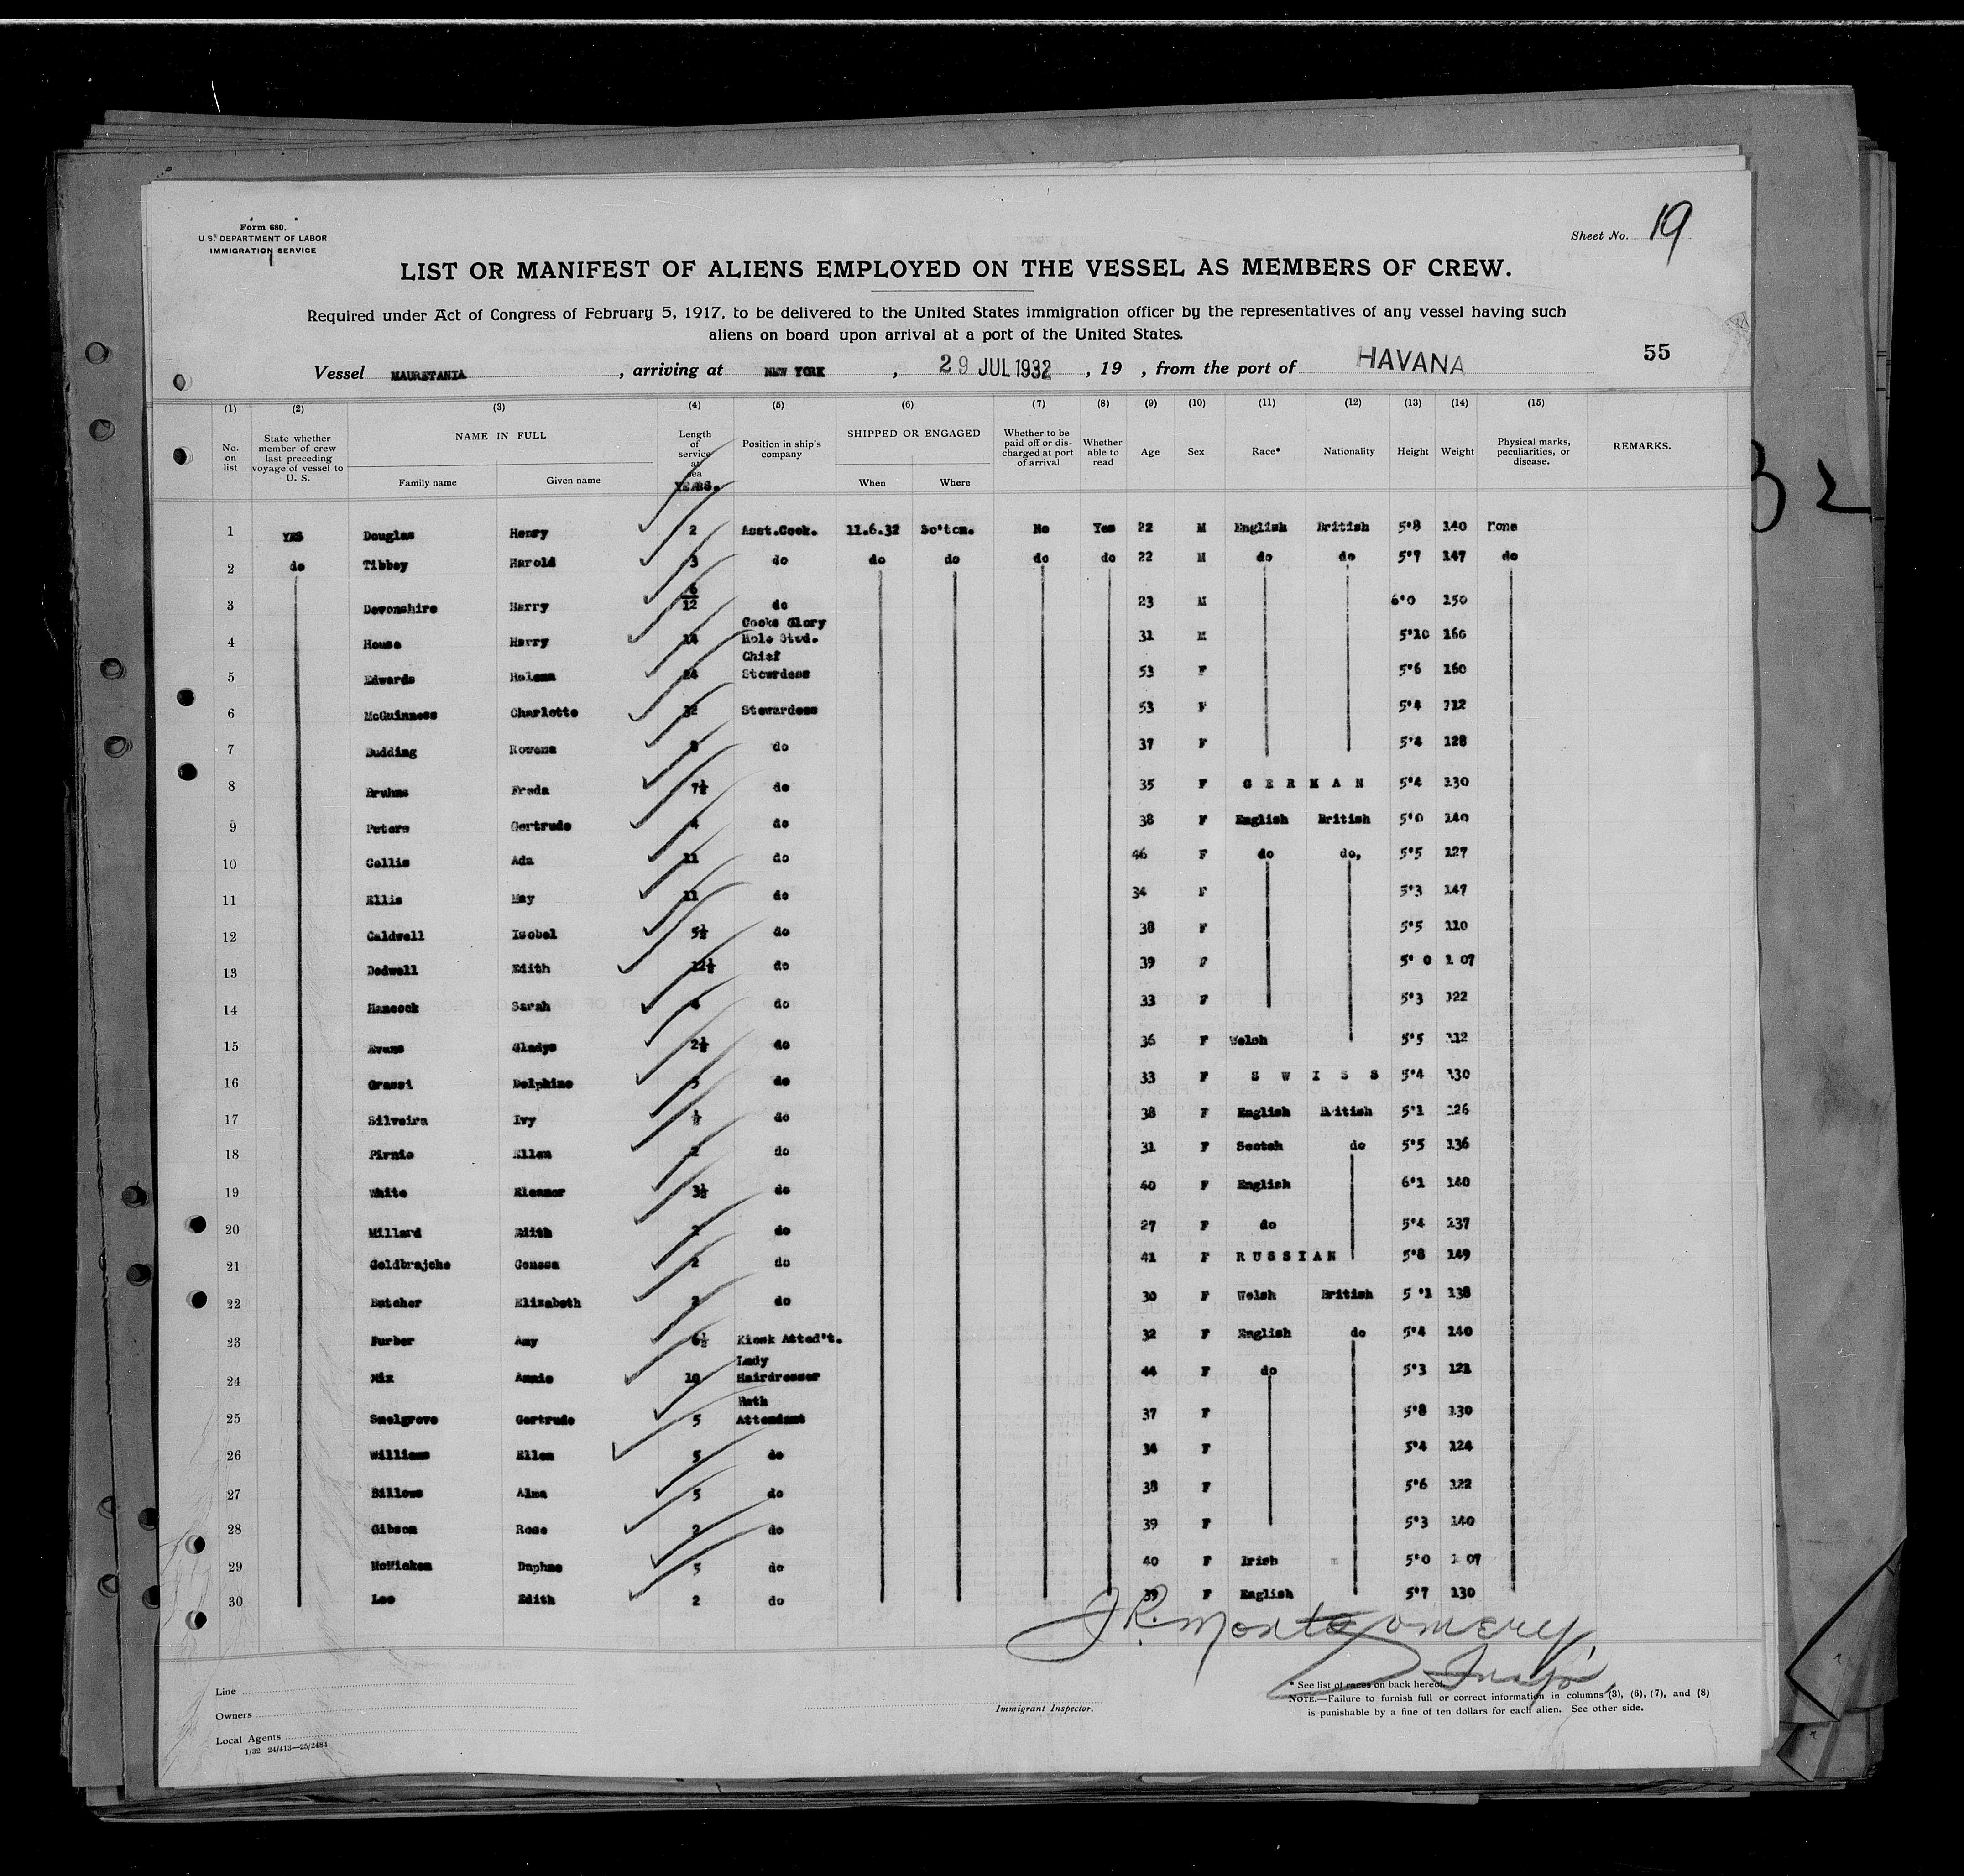 Form 680.
U.S. DEPARTMENT OF LABOR
IMMIGRATION SERVICE
Sheet No. 19
LIST OR MANIFEST OF ALIENS EMPLOYED ON THE VESSEL AS MEMBERS OF CREW.
Required under Act of Congress of February 5, 1917, to be delivered to the United States immigration officer by the representatives of any vessel having such
aliens on board upon arrival at a port of the United States.
55
Vessel MAURETANIA, arriving at NEW YORK, 29 JUL 1932, 19 , from the port of HAVANA
(1) (2) (3) (4) (5) (6) (7) (8) (9) (10) (11) (12) (13) (14) (15)
No. on list State whether member of crew last preceding voyage of vessel to U. S. NAME IN FULL Family name Given name Length of service at sea YEARS. Position in ship's company SHIPPED OR ENGAGED When Where Whether to be paid off or discharged at port of arrival Whether able to read Age Sex Race* Nationality Height Weight Physical marks, peculiarities, or disease. REMARKS.
1 YES Douglas Henry 2 Asst.Cook. 11.6.32 So'ton. No Yes 22 M English British 5'8 140 None
2 do Tibbey Harold 3 do do do do do 22 M do do 5'7 147 do
3 Devonshire Harry 6/12 do 23 M 6'0 150
4 House Harry 14 Cooks Glory Hole Stwd. 31 M 5'10 160
5 Edwards Helena 24 Chief Stewrdess 53 F 5'6 160
6 McGuinness Charlotte 32 Stewardess 53 F 5'4 112
7 Budding Rowena 8 do 37 F 5'4 128
8 Bruhns Freda 7½ do 35 F GERMAN 5'4 130
9 Peters Gertrude 4 do 38 F English British 5'0 140
10 Collis Ada 11 do 46 F do do, 5'5 127
11 Ellis May 11 do 34 F 5'3 147
12 Caldwell Isobel 5½ do 38 F 5'5 110
13 Dodwell Edith 12½ do 39 F 5' 0 1 07
14 Hancock Sarah 4 do 33 F 5'3 122
15 Evans Gladys 2½ do 36 F Welsh 5'5 112
16 Grassi Delphine 5 do 33 F SWISS 5'4 130
17 Silveira Ivy ½ do 38 F English British 5'1 126
18 Pirnie Ellen 2 do 31 F Scotch do 5'5 136
19 White Eleanor 3½ do 40 F English 6'1 140
20 Millard Edith 2 do 27 F do 5'4 137
21 Goldbrajche Genssa 2 do 41 F RUSSIAN 5'8 149
22 Butcher Elizabeth 2 do 30 F Welsh British 5 '1 138
23 Furber Amy 6½ Kiosk Atted't. 32 F English do 5'4 140
24 Nix Annie 10 Lady Hairdresser 44 F do 5'3 121
25 Snelgrove Gertrude 5 Bath Attendant 37 F 5'8 130
26 Williams Ellen 5 do 34 F 5'4 124
27 Billows Alma 5 do 38 F 5'6 122
28 Gibson Rose 2 do 39 F 5'3 140
29 McMicken Daphne 5 do 40 F Irish 5'0 1 07
30 Lee Edith 2 do 39 F English 5'7 130
J.R. Montgomery
Line
Owners
Local Agents
1/32 24/413—25/2484
Immigrant Inspector.
* See list of races on back hereof.
NOTE.—Failure to furnish full or correct information in columns (3), (6), (7), and (8)
is punishable by a fine of ten dollars for each alien. See other side.